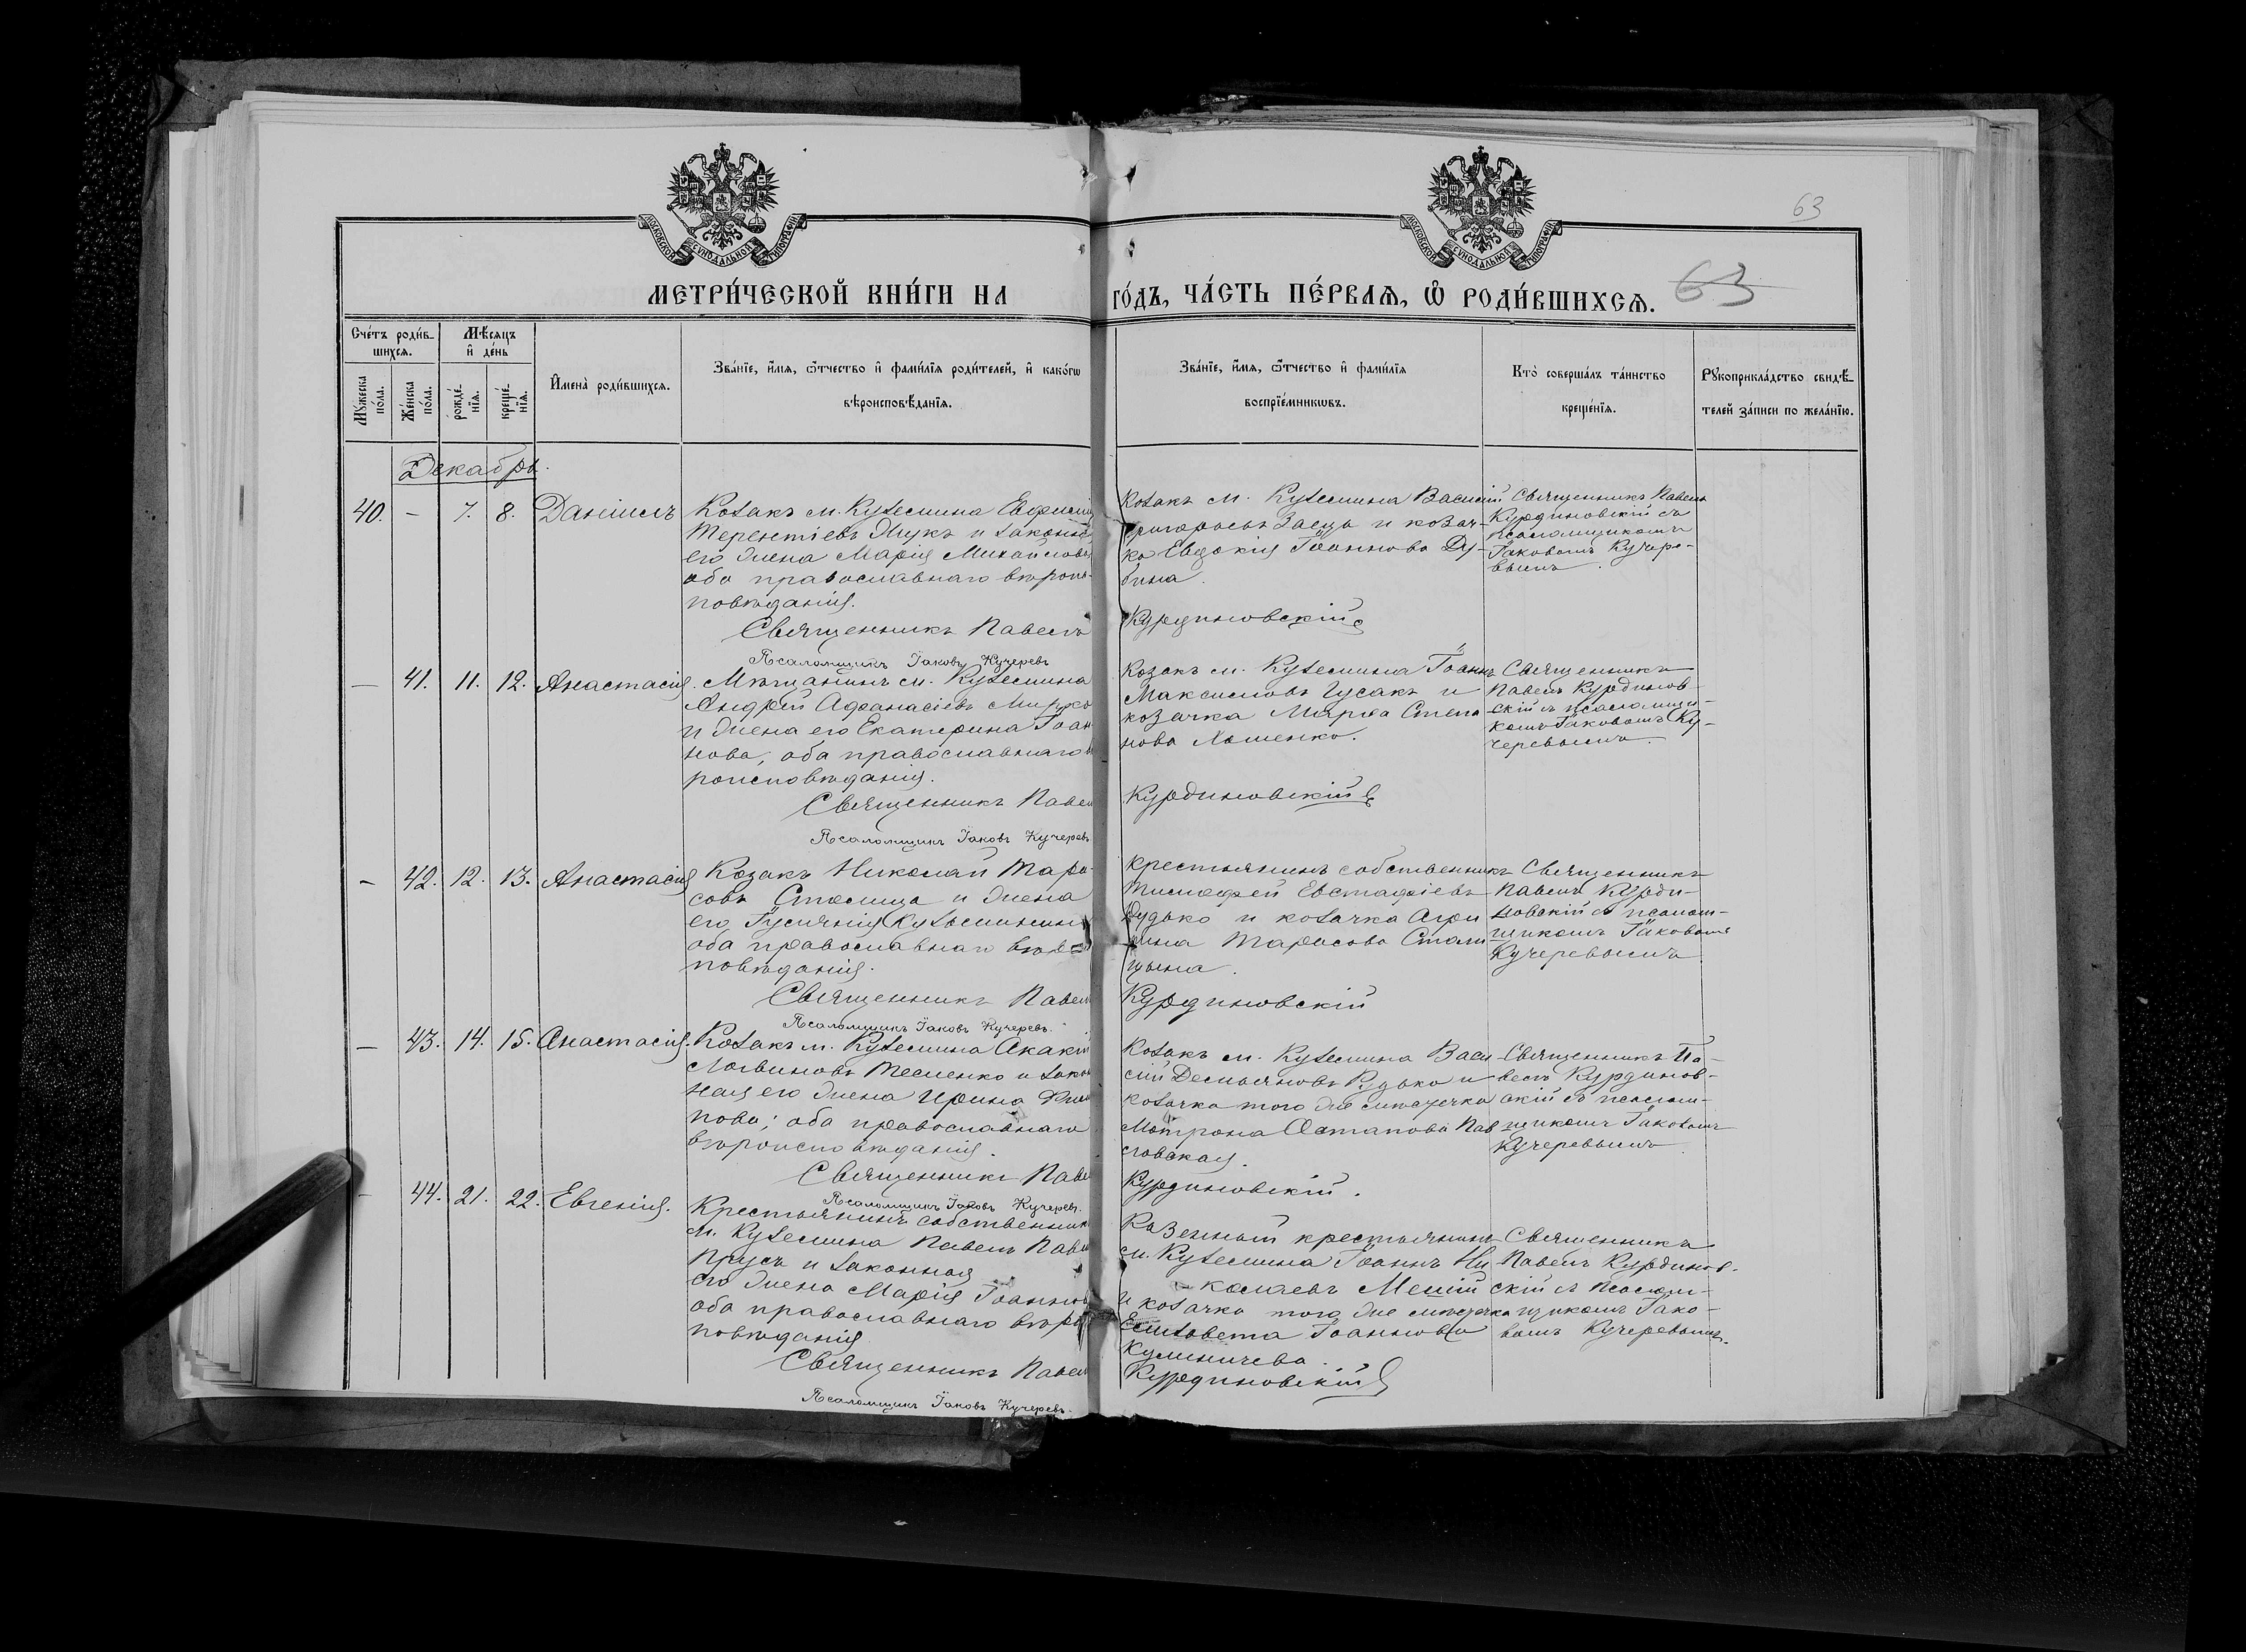 63
МОСКОВСКОЙ СѴНОДАЛЬНОЙ ТИПОГРАФІИ
МОСКОВСКОЙ СѴНОДАЛЬНОЙ ТИПОГРАФІИ
МЕТРИ́ЧЕСКОЙ КНИ́ГИ НА ГО́ДЪ, ЧА́СТЬ ПЕ́РВАѦ, Ѡ РОДИ́ВШИХСѦ. 63
Сче́тъ роди́в-
шихсѧ.
Мꙋ́жеска
по́ла.
Же́нска
по́ла.
Мѣ́сяцъ
и̂ де́нь
рожде́-
нїѧ.
креще́-
нїѧ.
И̂мена̀ роди́вшихсѧ.
Зва́нїе, и̂́мѧ, ѻ҆́тчество и̂ фами́лїѧ роди́телей, и̂ како́гѡ
вѣроисповѣ́данїѧ.
Зва́нїе, и̂́мѧ, ѻ҆́тчество и̂ фами́лїѧ
воспрїе́мникѡвъ.
Кто̀ соверша́лъ та́инство
креще́нїѧ.
Рꙋкоприкла́дство свидѣ́-
телей за́писи по жела́нїю.
Декабрь.
40. - 7. 8. Даніилъ
Козакъ м. Куземина Евфимій
Терентіевъ Жукъ и законная
его жена Марія Михайлова
оба православнаго вѣроис-
повѣданія.
Священникъ Павелъ
Псаломщикъ Іаковъ Кучеревъ
Козакъ м. Куземина Василій
Григорьевъ Заецъ и козач-
ка Евдокія Іоаннова Ду-
бина.
Курдиновскій
Священникъ Павелъ
Курдиновскій съ
псаломщикомъ
Іаковомъ Кучере-
вымъ.
— 41. 11. 12. Анастасія.
Мѣщанинъ м. Куземина
Андрей Афанасіевъ
и жена его Екатерина Іоан
нова, оба православнаго вѣ
роисповѣданія.
Священникъ Павел
Псаломщикъ Іаковъ Кучеревъ
Козакъ м. Куземина Іоаннъ
Максимовъ Гусакъ и
козачка Марѳа Степа
нова
Курдиновскій
Священникъ
Павелъ Курдинов-
скій съ псаломщи-
комъ Іаковомъ Ку-
черевымъ.
— 42. 12. 13. Анастасія
Козакъ Николай Тара-
совъ Столица и жена
его
оба православнаго
повѣданія.
Священникъ Павелъ
Псаломщикъ Іаковъ Кучеревъ.
Крестьянинъ собственникъ
Тимофей Евстафіевъ
Дудько и козачка Агри
пина Тарасова Столи
цына.
Курдиновскій
Священникъ
Павелъ Курди-
новскій съ псалом-
щикомъ Іаковомъ
Кучеревымъ
— 43. 14. 15. Анастасія.
Козакъ м. Куземина Акакій
Логвиновъ Тесленко и закон
ная его жена Ирина Фили
пова; оба православнаго
вѣроисповѣданія.
Священникъ Паве
Псаломщикъ Іаковъ Кучеревъ.
Козакъ м. Куземина Васи-
лій Демьяновъ Рудько и
козачка того же мѣстечка
Мотрона Остапова Пав
ловская.
Курдиновскій.
Священникъ Па-
велъ Курдинов-
скій съ псалом-
щикомъ Іаковомъ
Кучеревымъ.
- 44. 21. 22. Евгенія.
Крестьянинъ собственник
м. Куземина Павелъ Павл
Прусъ и законная
его жена Марія Іоаннова
оба православнаго вѣроис
повѣданія
Священникъ Павел
Псаломщикъ Іаковъ Кучеревъ.
Казенный крестьянинъ
м. Куземина Іоаннъ Ни
колаевъ
и козачка того же мѣстечка
Елисавета Іоаннова
Кулиничева.
Курдиновскій
Священникъ
Павелъ Курдинов-
скій съ псалом-
щикомъ Іако-
вомъ Кучеревымъ.